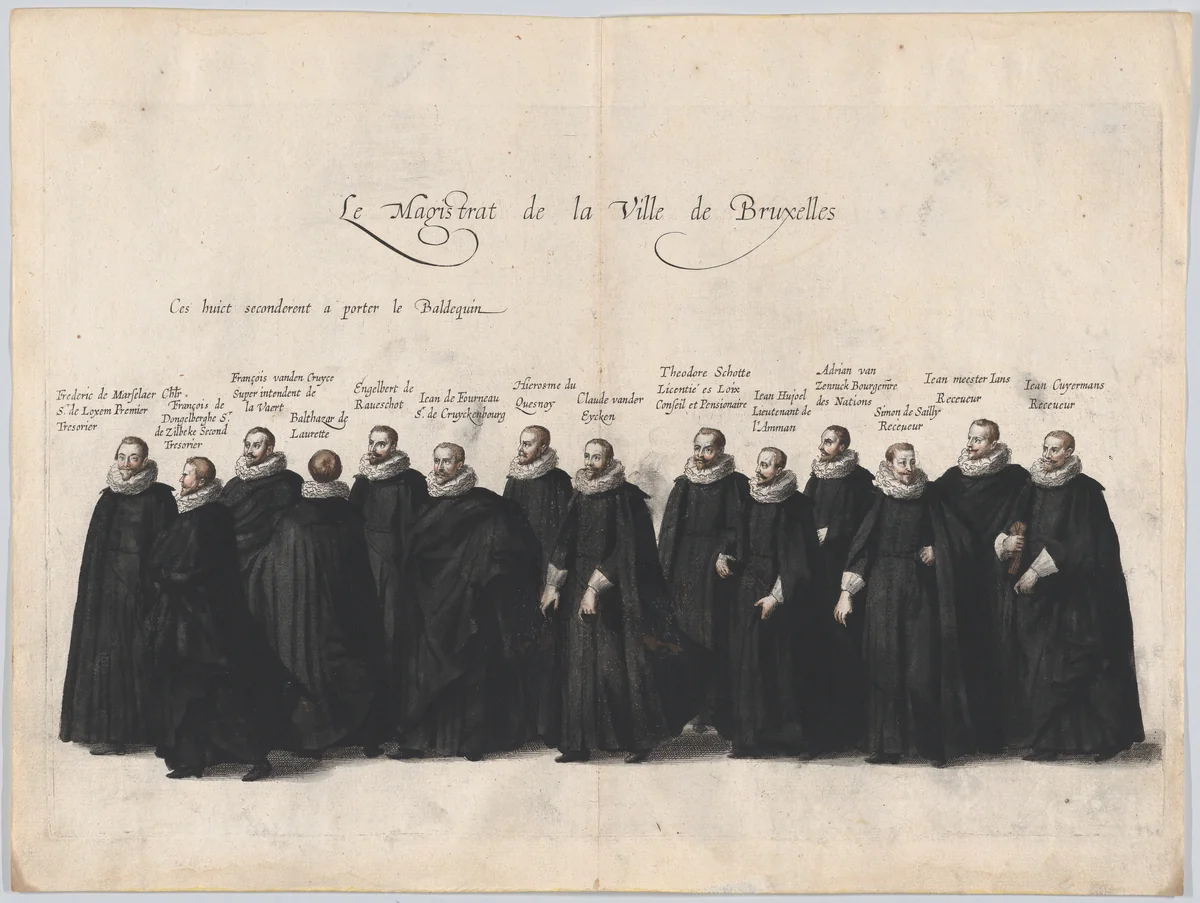 Le Magistrat de la Ville de Bruxelles
Ces huict seconderent a porter le Baldequin
Frederic de Marselaer Chlr.
Sr. de Loxem Premier
Tresorier
François de
Dongelberghe Sr.
de Zilbeke Second
Tresorier
François vanden Cruyce
Super intendent de
la Vaert
Balthazar de
Laurette
Engelbert de
Raueschot
Iean de Fourneau
Sr. de Cruyckenbourg
Hierosme du
Quesnoy
Claude vander
Eycken
Theodore Schotte
Licentié es Loix
Conseil et Pensionaire
Iean Hujoel
Lieutenant de
l'Amman
Adrian van
Zennick Bourgemre
des Nations
Simon de Sailly
Receveur
Iean meester Ians
Receueur
Iean Cuyermans
Receueur